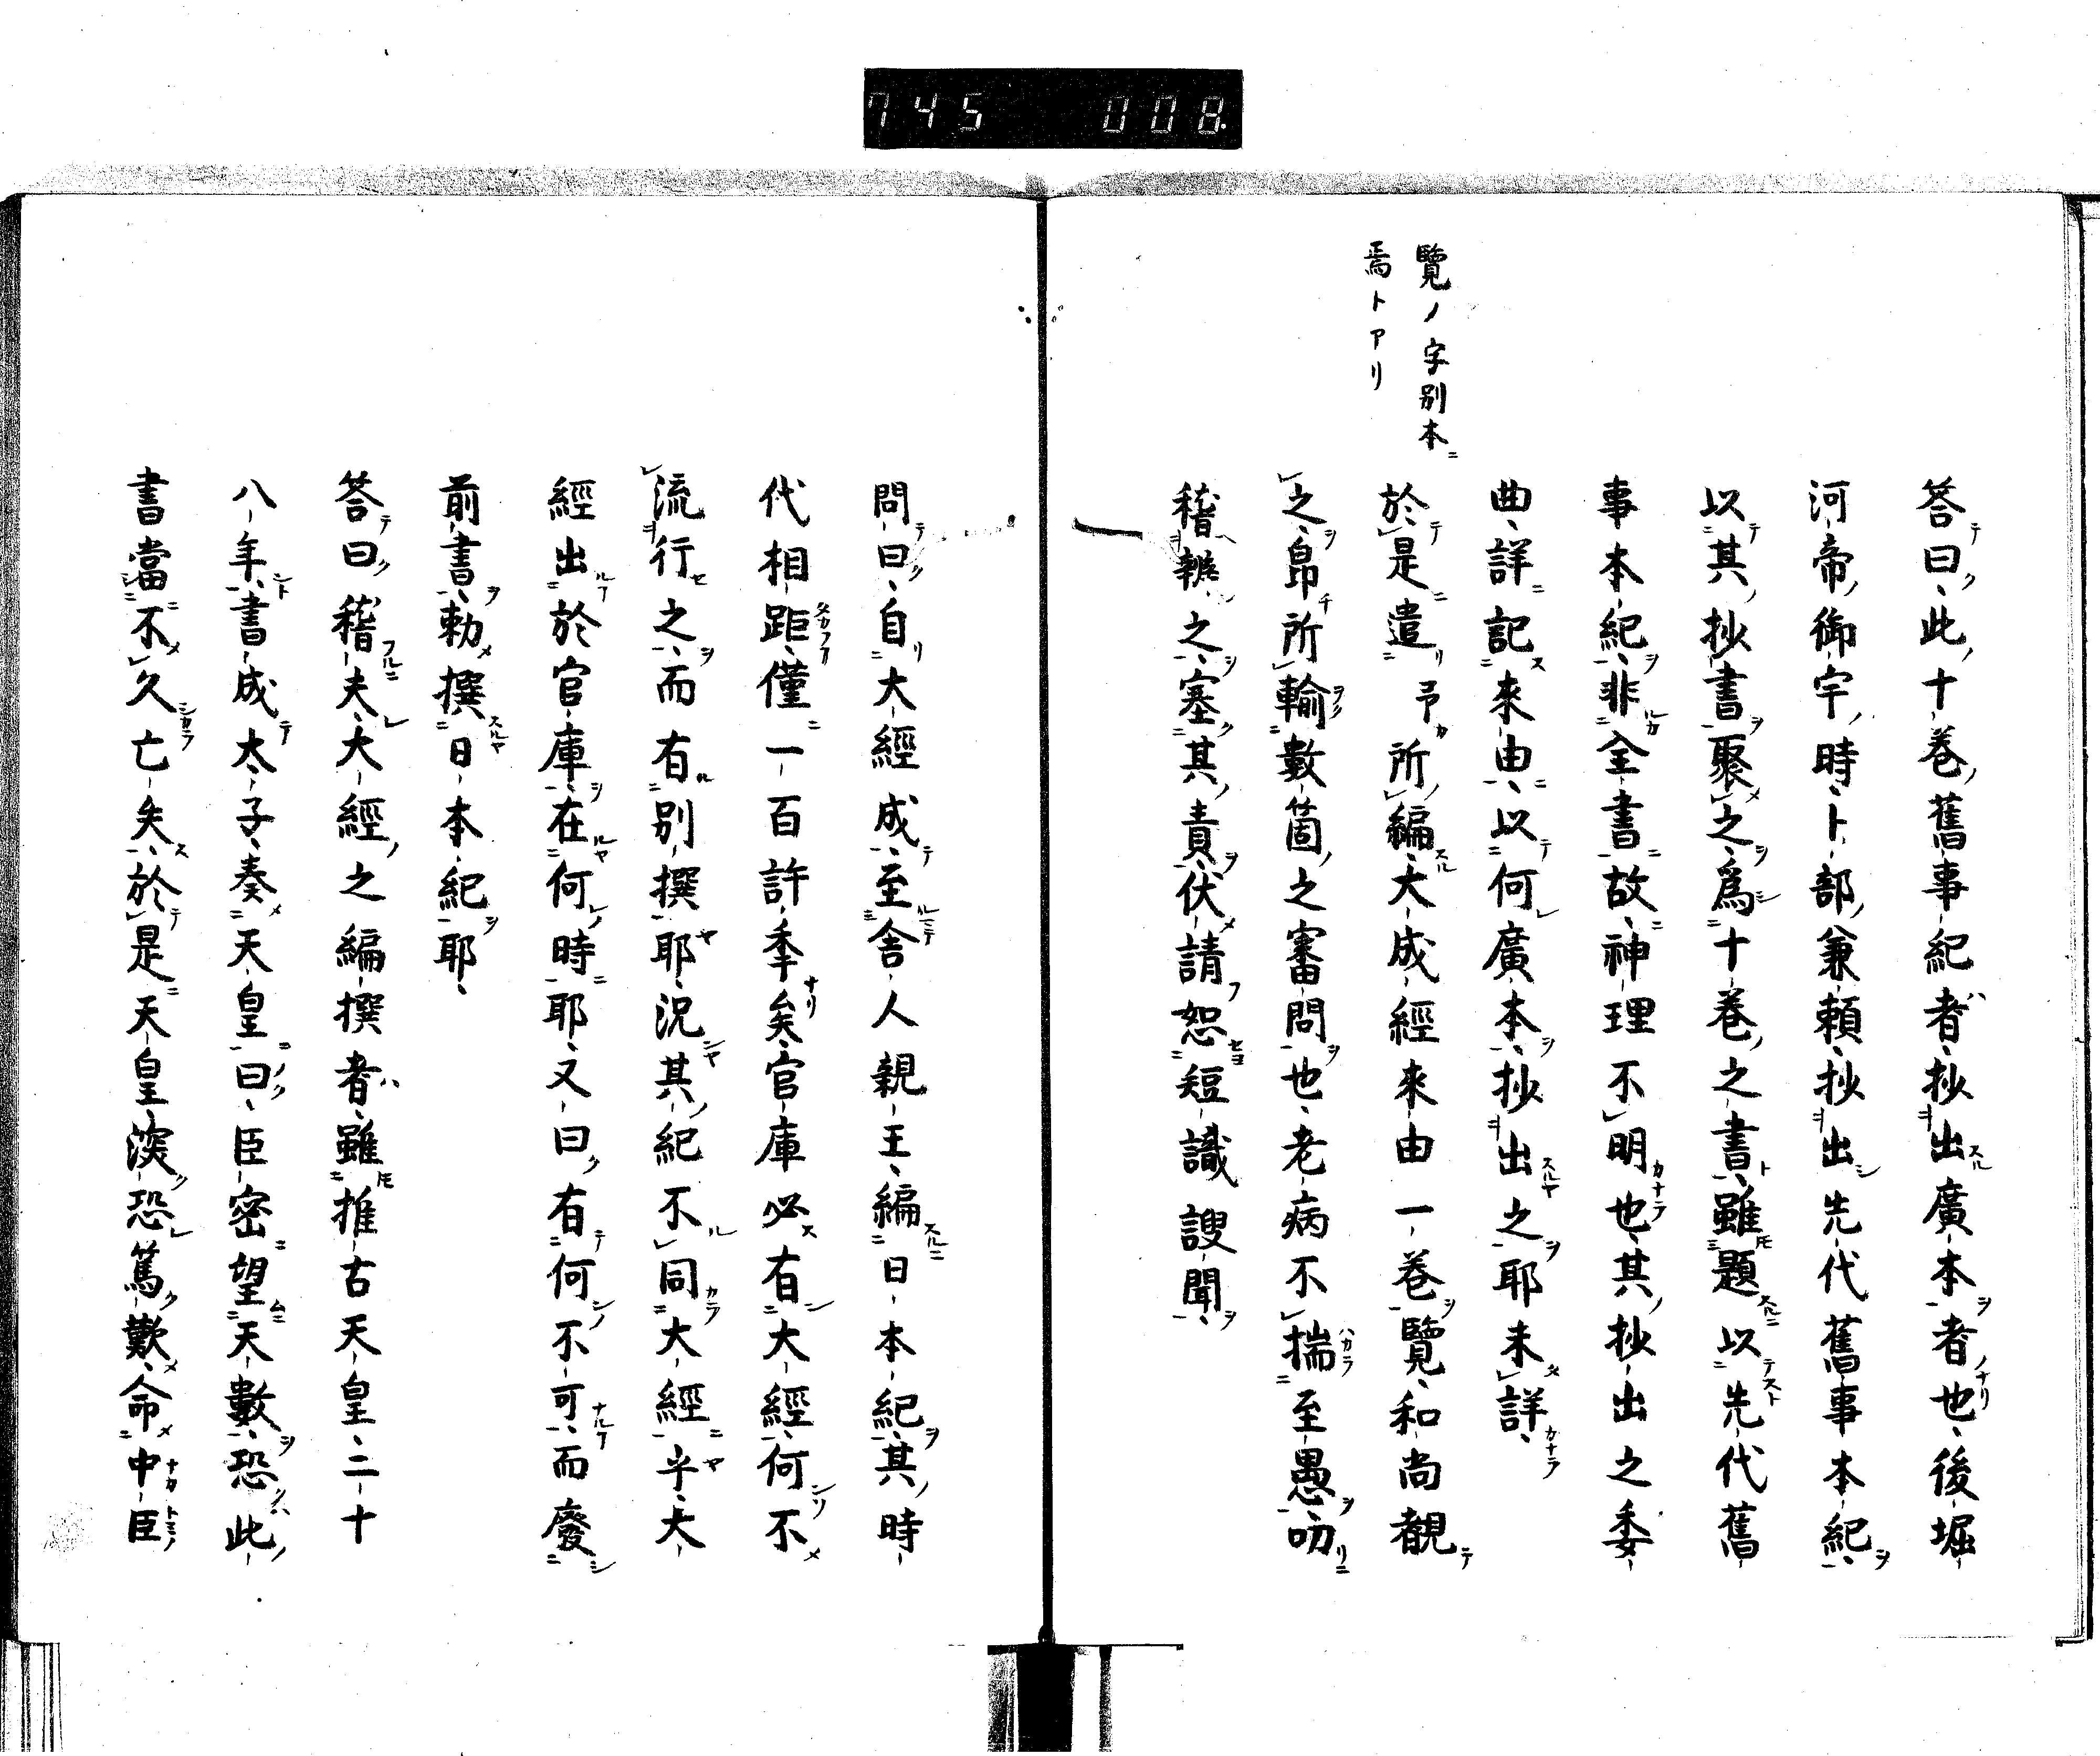 745 008
覽ノ字別本ニ
焉トアリ
答曰此十巻舊事紀者抄出廣本者也後堀
河帝御宇時卜部兼頼抄出先代舊事本紀
以其抄書聚之爲十巻之書雖題以先代舊
事本紀非全書故神理不明也其抄出之委
曲詳記來由以何廣本抄出之耶未詳
於是遣予所編大成經來由一巻覽和尚覩
之帛所輸數箇之審問也老病不揣至愚叨
稽辨之塞其責伏請恕短識謏聞
問曰自大經成至舎人親王編日本紀其時
代相距僅一百許季矣官庫必有大經何不
流行之而有別撰耶況其紀不同大經乎大
經出於官庫在何時耶又曰有何不可而廢
前書勅撰日本紀耶
答曰稽夫大經之編撰者雖推古天皇二十
八年書成太子奏天皇曰臣密望天數恐此
書當不久亡失於是天皇深恐篤歎命中臣